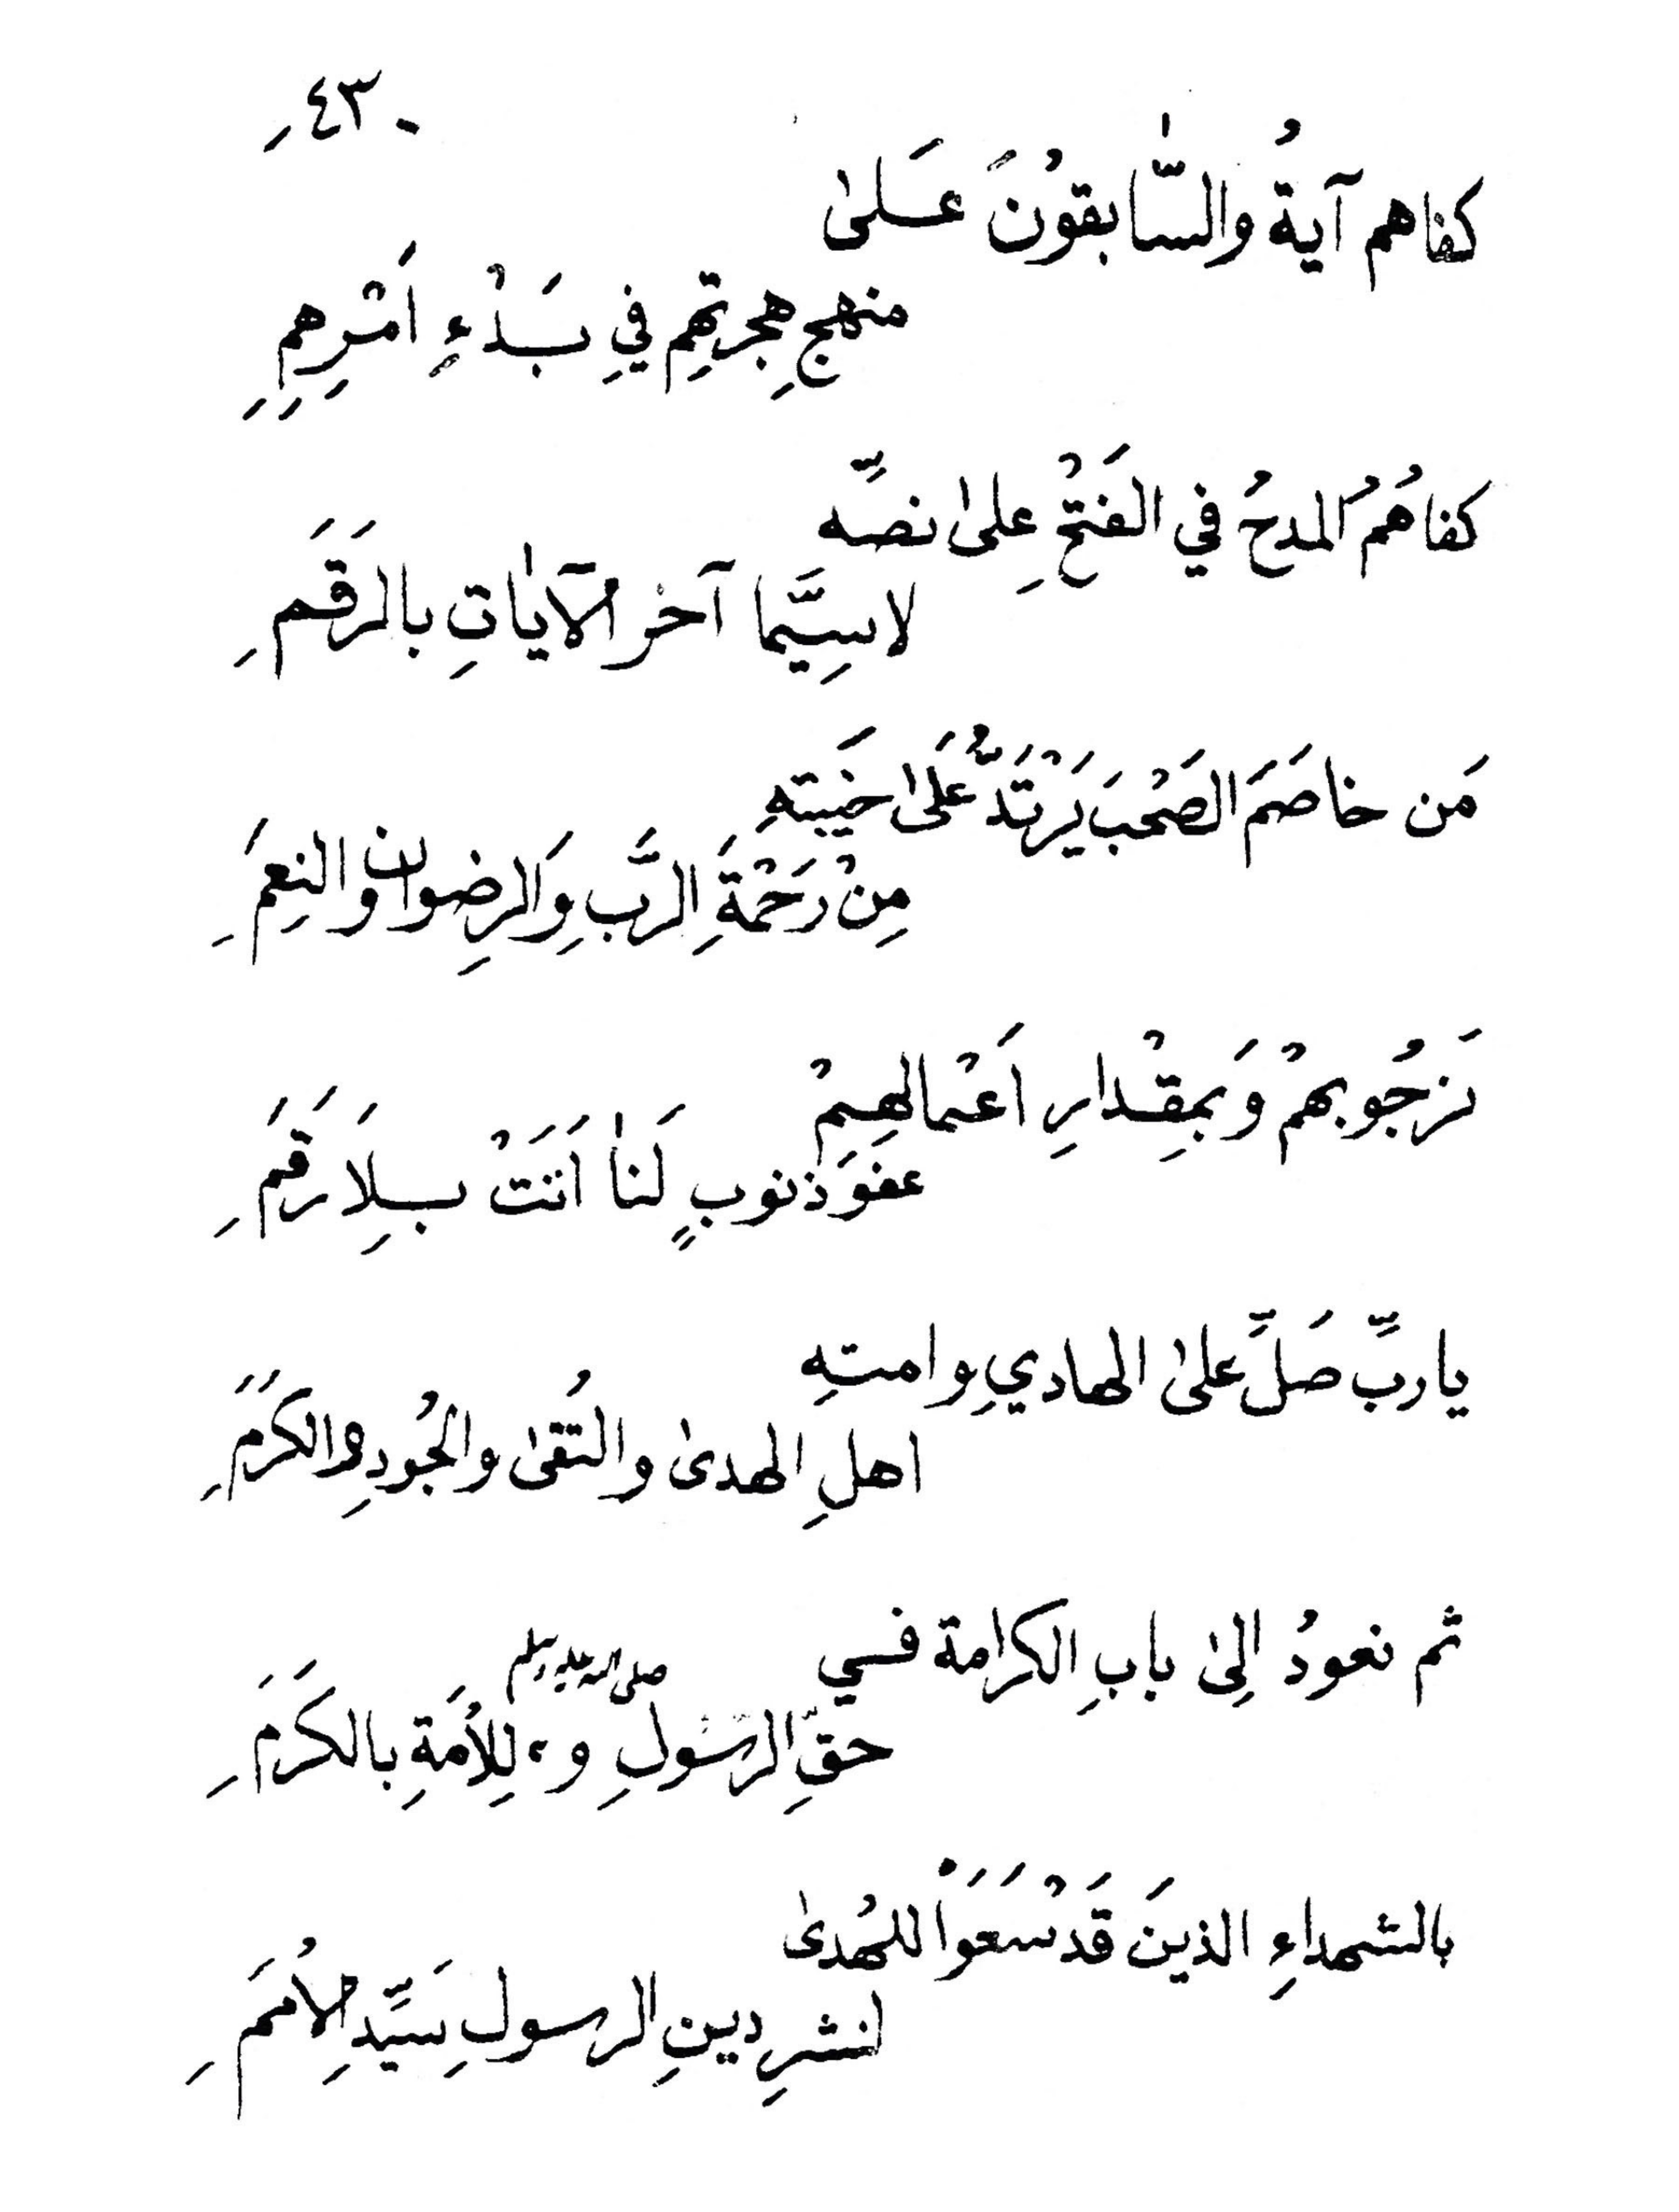 ٤٣
كفاهم آيةُ والسّٰابقوْنَ عَلىٰ
منهجِ هِجرتِهِم فِي بَدْءِ اَمْرِهِمِ
كفاهُمُ المدحُ في الفَتْحِ علىٰ نصِّه
لاسِيَّما آخر الآيٰاتِ بالرقَمِ
مَن خاصَمَ الصَحْبَ يَرْتَدُّ عَلىٰ خَيبتهِ
مِنْ رَحْمَةِ الرَّبِ وَالرِضوان والنِعَمِ
نَرجُو بهمْ وَبمِقْدارِ اَعْمالهِمْ
عفوَ ذنوبٍ لَنٰا اَتَتْ بِلاَ رَقَمِ
ياربِّ صَلِّ علىٰ الهادي وامتهِ
اهلِ الهدىٰ والتُقىٰ والجُودِ والكَرَمِ
ثم نعودُ اِلىٰ بابِ الكرامة في
صلى الله عليه وسلم
حقِّ الرسُولِ و، لِلأمةِ بالكَرَمِ
بالشهداءِ الذينَ قَدْ سَعَوْا للهُدىٰ
لنشرِ دينِ الرسولِ سَيِّدِ الأُمَمِ